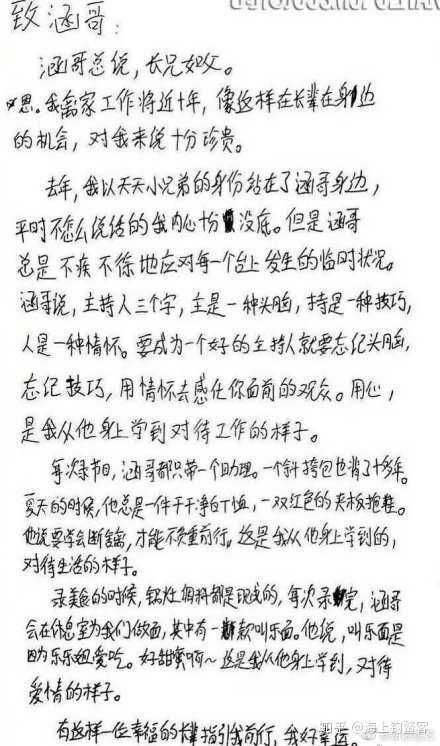 致涵哥：
涵哥总说，长兄如父。
思。我离家工作将近十年，像这样在长辈在身边
的机会，对我来说十分珍贵。
去年，我以天天小兄弟的身份站在了涵哥身边，
平时不怎么说话的我内心十分没底。但是涵哥
总是不疾不徐地应对每一个台上发生的临时状况。
涵哥说，主持人三个字，主是一种头脑，持是一种技巧，
人是一种情怀。要成为一个好的主持人就要忘记头脑，
忘记技巧，用情怀去感任你面前的观众。用心，
是我从他身上学到对待工作的样子。
每次录节目，涵哥都只带一个助理。一个斜挎包也背了十多年。
夏天的时候，他总是一件干干净白T恤，一双红色的夹板拖鞋。
他说要学会断舍离，才能不负重前行。这是我从他身上学到的，
对待生活的样子。
录美食的时候，锅灶调料都是现成的，每次录完，涵哥
会在休息室为我们做面，其中有一款叫乐面。他说，叫乐面是
因为乐乐姐爱吃。好甜蜜啊～这是我从他身上学到，对待
爱情的样子。
有这样一位幸福的长辈指引我前行，我好幸运。
知乎 @海上钓鳌客